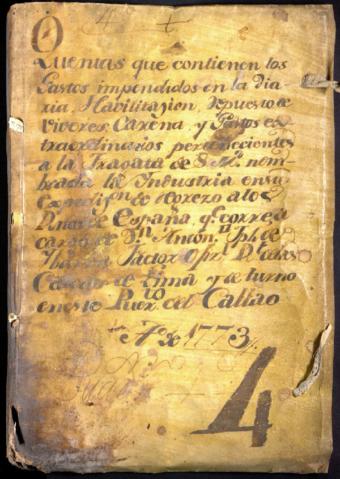 4 +
Quentas que contienen los
Gastos impendidos en la Dia-
ria, Havilitasion, Repuesto de
Viveres, Carena y Gastos ex-
traordinarios pertenecientes
a la Fragata de S. M. nom-
brada la Industria en su
de a los
de España qe. corre a
cargo de Dn. Anton. Jph. de
Factor
de Lima y de turno
en este Puerto del Callao
Ao. de 1773
4